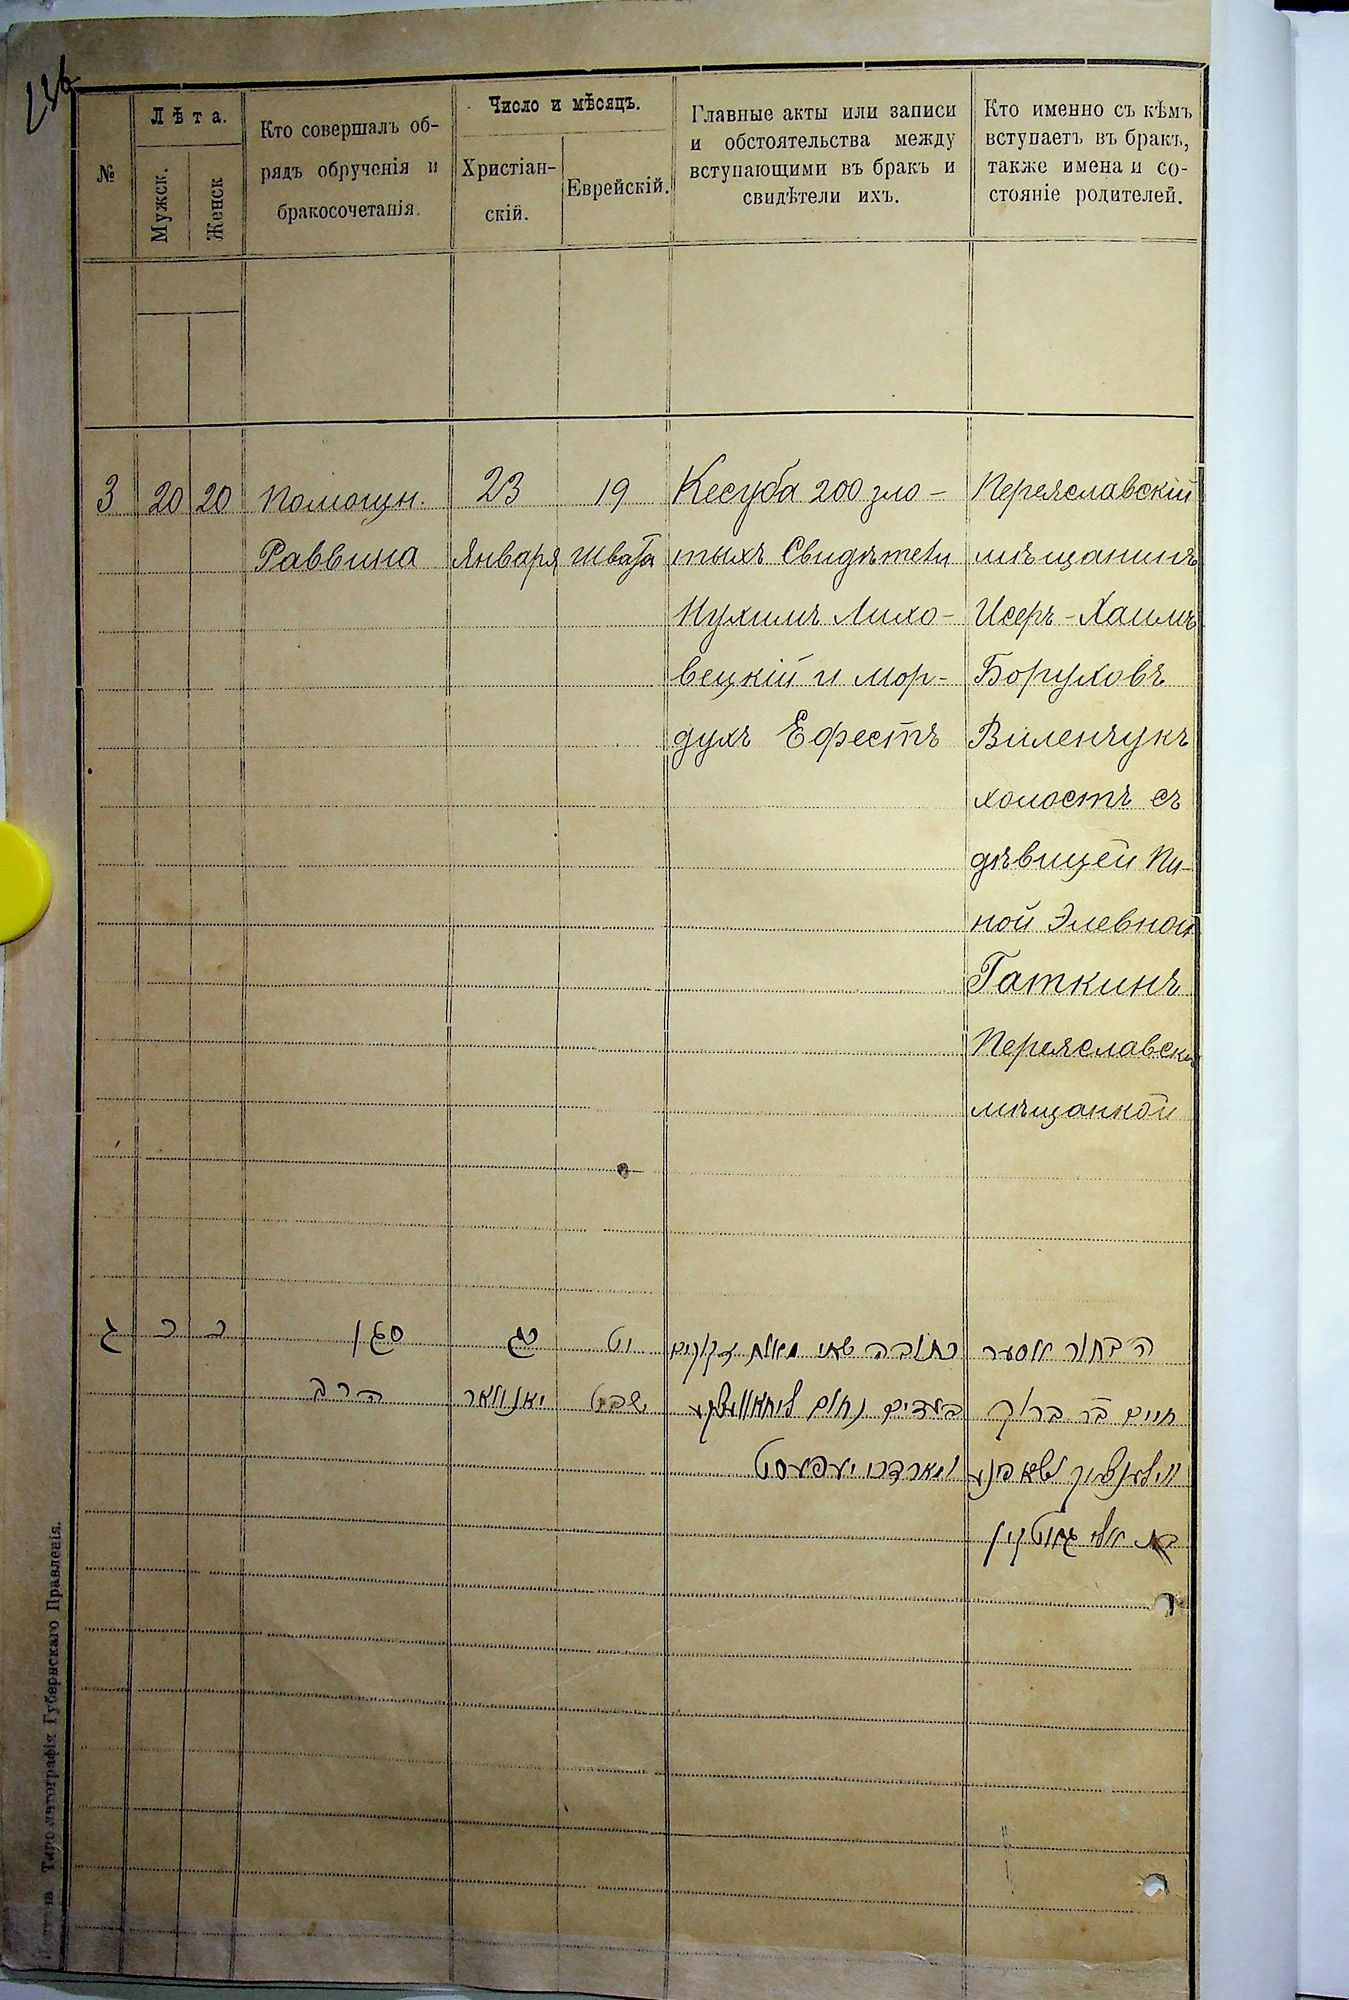 №
Лѣта.
Мужск.
Женск
Кто совершалъ об-
рядъ обрученія и
бракосочетанія.
Число и мѣсяцъ.
Христіан-
скій.
Еврейскій.
Главные акты или записи
и обстоятельства между
вступающими въ бракъ и
свидѣтели ихъ.
Кто именно съ кѣмъ
вступаетъ въ бракъ,
также имена и со-
стояніе родителей.
3
20
20
Помощн.
Раввина
23
Января
19
Швата
Кесуба 200 зло-
тыхъ Свидѣтели
Нухимъ Лихо-
вецкій и Мор-
духъ Ефестъ
Переяславскій
мѣщанинъ
Исеръ-Хаимъ
Боруховъ
Виленчукъ
холостъ съ
дѣвицей Пи-
ной Элевной
Гаткинъ
Переяславской
мѣщанкой
ג
כ
כ
סגן
הרב
כג
יאנוואר
יט
שבט
כתובה שתי מאות זקוקים
בעדים נחום
יעפעסט
הבחור איסער
חיים בר ברוך
ווילענטשוק
בת
Типо-литографія Губернскаго Правленія.